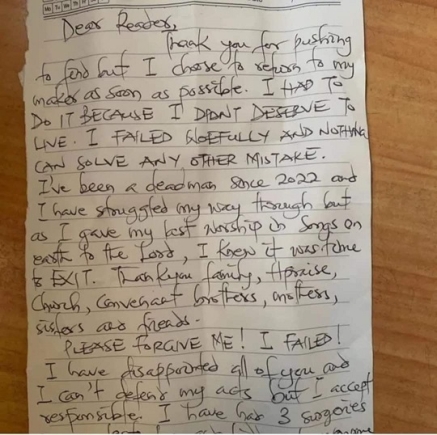 Dear Readers,
Thank you for pushing
to find but I chose to return to my
maker as soon as possible. I HAD TO
DO IT BECAUSE I DIDNT DESERVE TO
LIVE. I FAILED WOEFULLY AND NOTHING
CAN SOLVE ANY OTHER MISTAKE.
I've been a deadman since 2022 and
I have struggled my way through but
as I gave my last worship in songs on
earth to the Lord, I knew it was time
to EXIT. Thank you family, Apraise,
Church, convenant brothers, mothers,
sisters and friends.
PLEASE FORGIVE ME! I FAILED!
I have disappointed all of you and
I can't defend my acts but I accept
responsible. I have had 3 surgeries